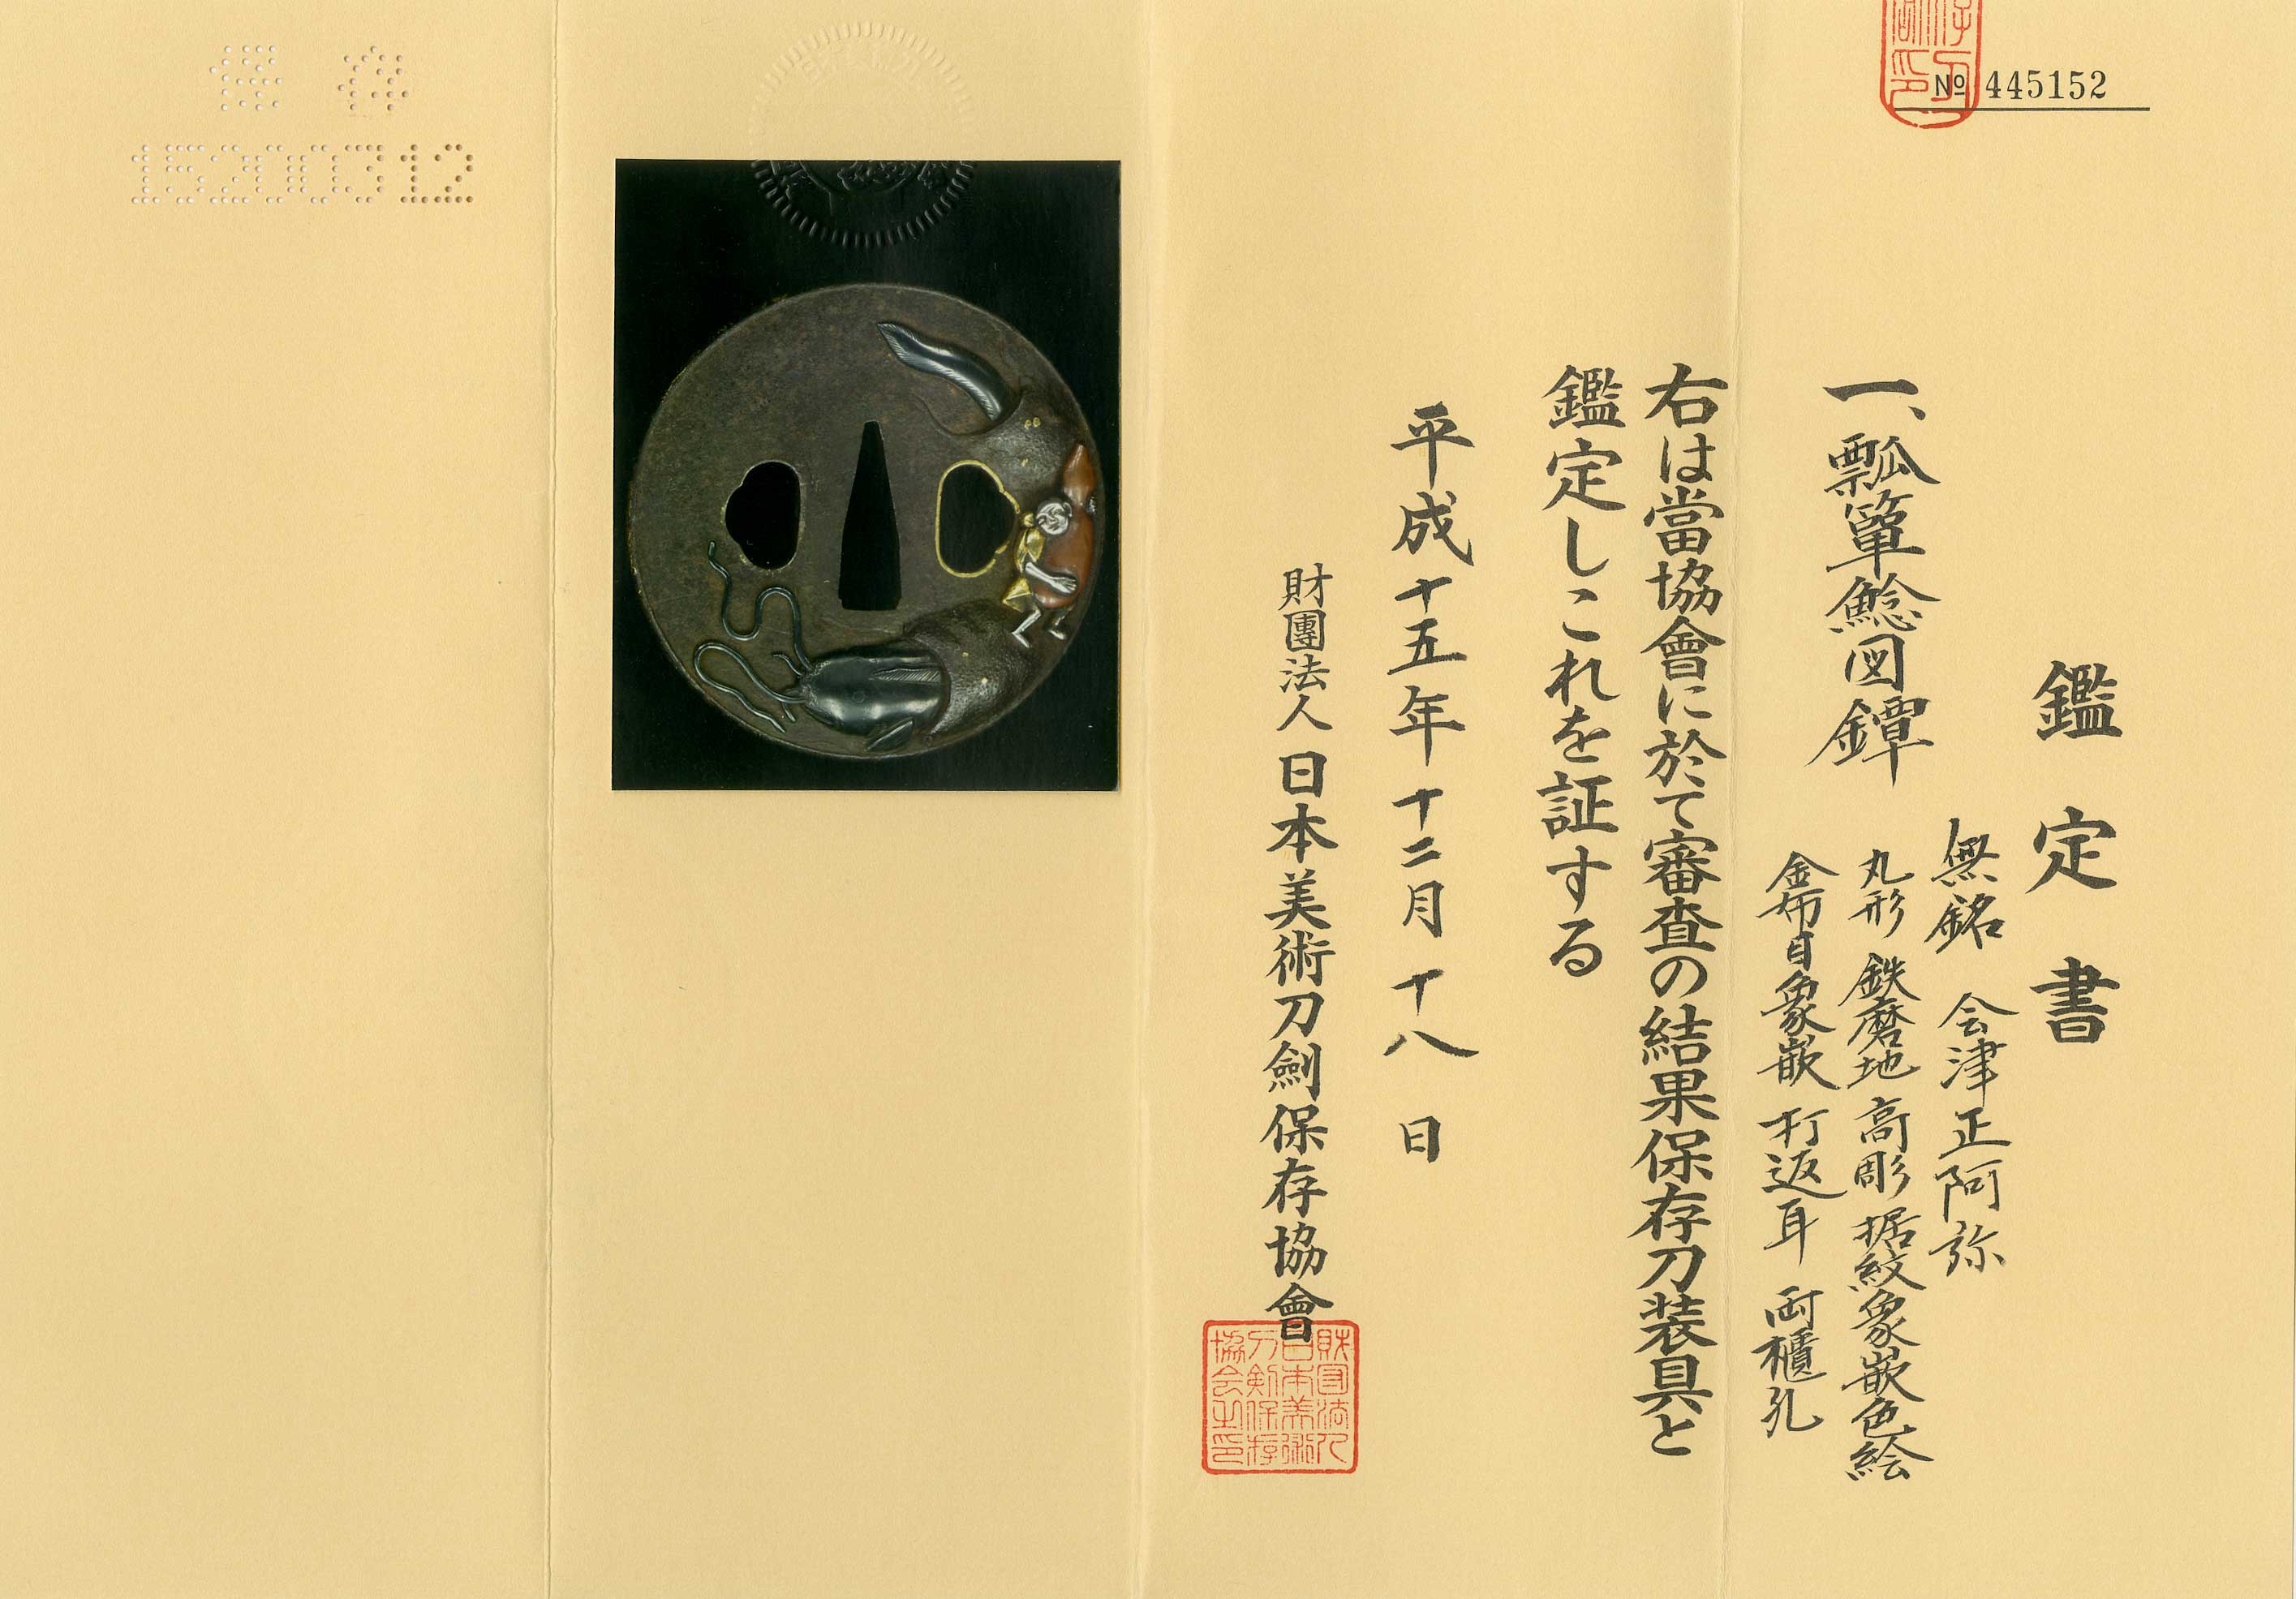 No 445152
鑑定書
無銘 会津正阿弥
一、瓢箪鯰図鐔
丸形 鉄磨地 高彫 据紋象嵌色絵
金布目象嵌 打返耳 両櫃孔
右は當協會に於て審査の結果保存刀装具と
鑑定しこれを証する
平成十五年十二月十八日
財團法人日本美術刀劍保存協會
財団法人
日本美術
刀剣保存
協会之印
保存
15200312